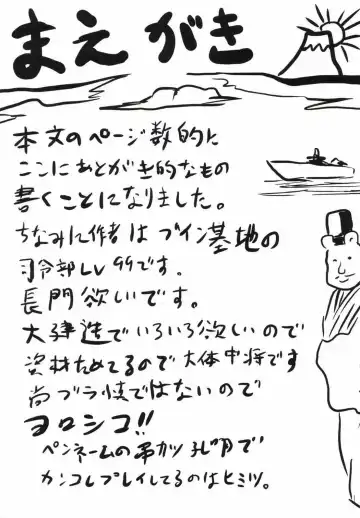 まえがき
本文のページ数的に
ここにあとがき的なもの
書くことになりました。
ちなみに作者はブイン基地の
司令部LV99です。
長門欲しいです。
大建造でいろいろ欲しいので
資材ためてるので大体中将です
尚ブラ鎮ではないので
ヨロシコ!!
ペンネームの串カツ
でカンコレプレイしてるのはヒミツ。